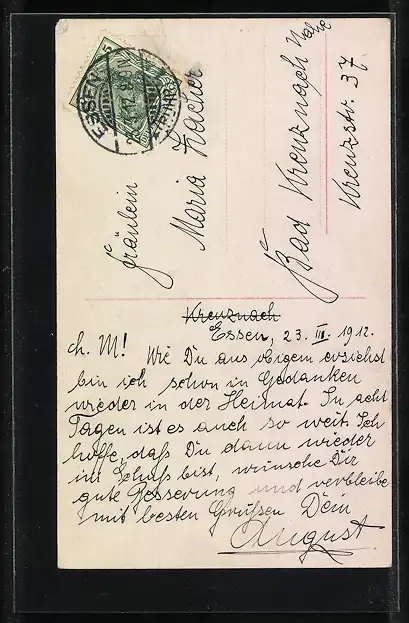 ESSEN
(RUHR)
5
Fräulein
Maria Zacher
Bad Kreuznach Nahe
Kreuzstr. 37
Kreuznach
Essen, 23. III. 1912.
ch. M! Wie Du aus obigem ersiehst
bin ich schon in Gedanken
wieder in der Heimat. In acht
Tagen ist es auch so weit. Ich
hoffe, daß Du dann wieder
im Schuß bist, wünsche Dir
gute Besserung und verbleibe
mit besten Grüßen Dein
August